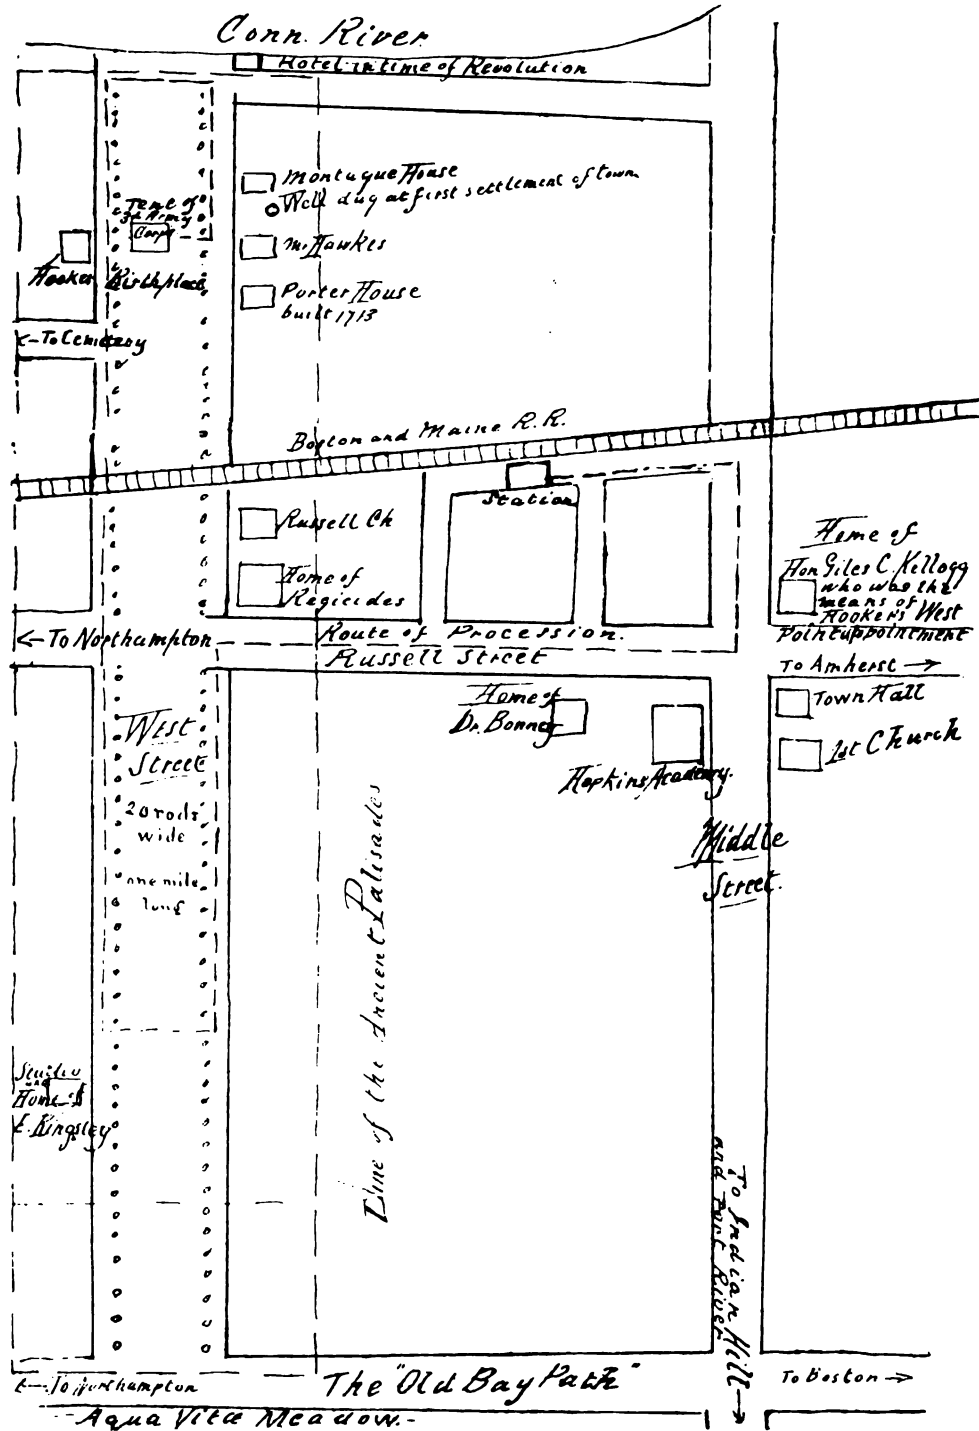 Conn. River
Hotel in time of Revolution
Montague House
Well dug at first settlement of town
Tent of
3d Army
Corps
Mr Hawkes
Hooker Birthplace
Porter House
built 1713
<- To Cemetery
Boston and Maine R.R.
Station
Russell Ch
Home of
Regicides
Home of
Hon Giles C. Kellogg
who was the
means of
Hooker's West
Point appointment
<- To Northampton
Route of Procession.
Russell Street
To Amherst ->
Home of
Dr. Bonney
Hopkins Academy.
Town Hall
1st Church
West
Street
20 rods
wide
one mile
long
Middle
Street.
Line of the Ancient Palisades
Studio
and
Home of
E. Kingsley
To Indian Hill ->
and Fort River
<- To Northampton
The "Old Bay Path"
To Boston ->
Aqua Vitæ Meadow.-